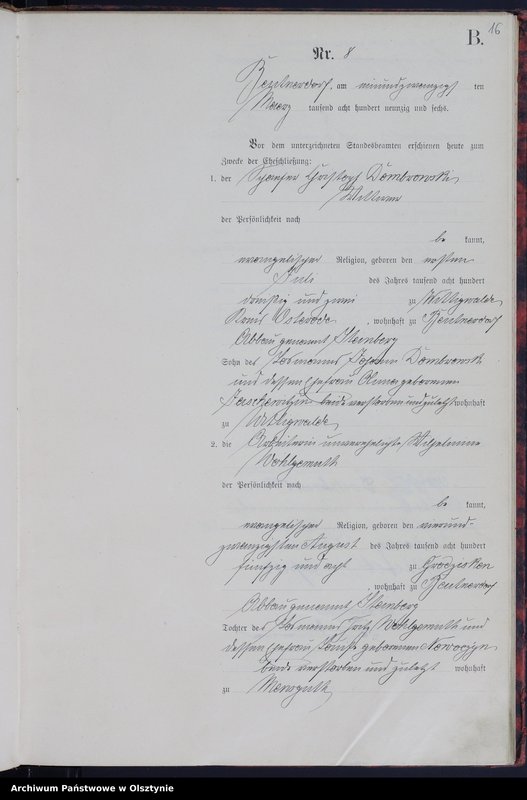 16
B.
Nr. 8
Beutnerdorf, am neunundzwanzigsten
Maerz tausend acht hundert neunzig und sechs.
Vor dem unterzeichneten Standesbeamten erschienen heute zum
Zwecke der Eheschließung:
1. der Schaefer Christoph Dombrowski,
Wittwer
der Persönlichkeit nach
be kannt,
evangelischer Religion, geboren den ersten
Juli des Jahres tausend acht hundert
dreißig und zwei zu Wittigwalde
Kreis Osterode, wohnhaft zu Beutnerdorf
Abbau genannt Steinberg
Sohn des Losmanns Johann Dombrowski
und dessen Ehefrau Anna geborenen
beide verstorben und zuletzt wohnhaft
zu Wittigwalde
2. die Arbeiterin unverehelichte Wilhelmine
Wohlgemuth
der Persönlichkeit nach
be kannt,
evangelischer Religion, geboren den vierund-
zwanzigsten August des Jahres tausend acht hundert
fünfzig und acht zu Grodzisken
, wohnhaft zu Beutnerdorf
Abbau genannt Steinberg
Tochter des Losmanns Fritz Wohlgemuth und
dessen Ehefrau Louise geborenen
beide verstorben und zuletzt wohnhaft
zu
Archiwum Państwowe w Olsztynie